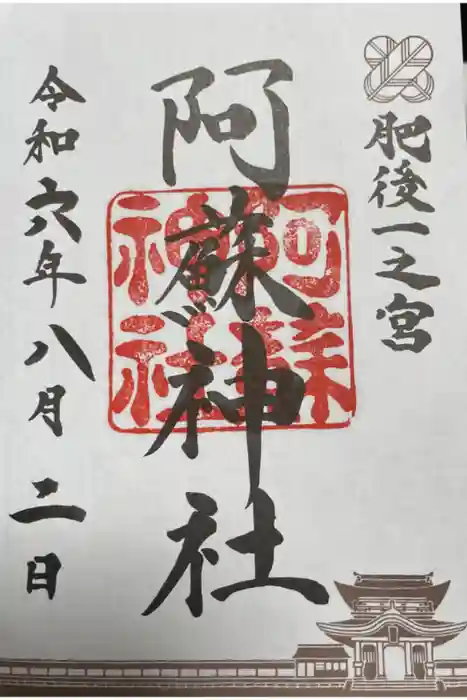 肥後一之宮
阿蘇神社
阿蘇神社
令和六年八月二日